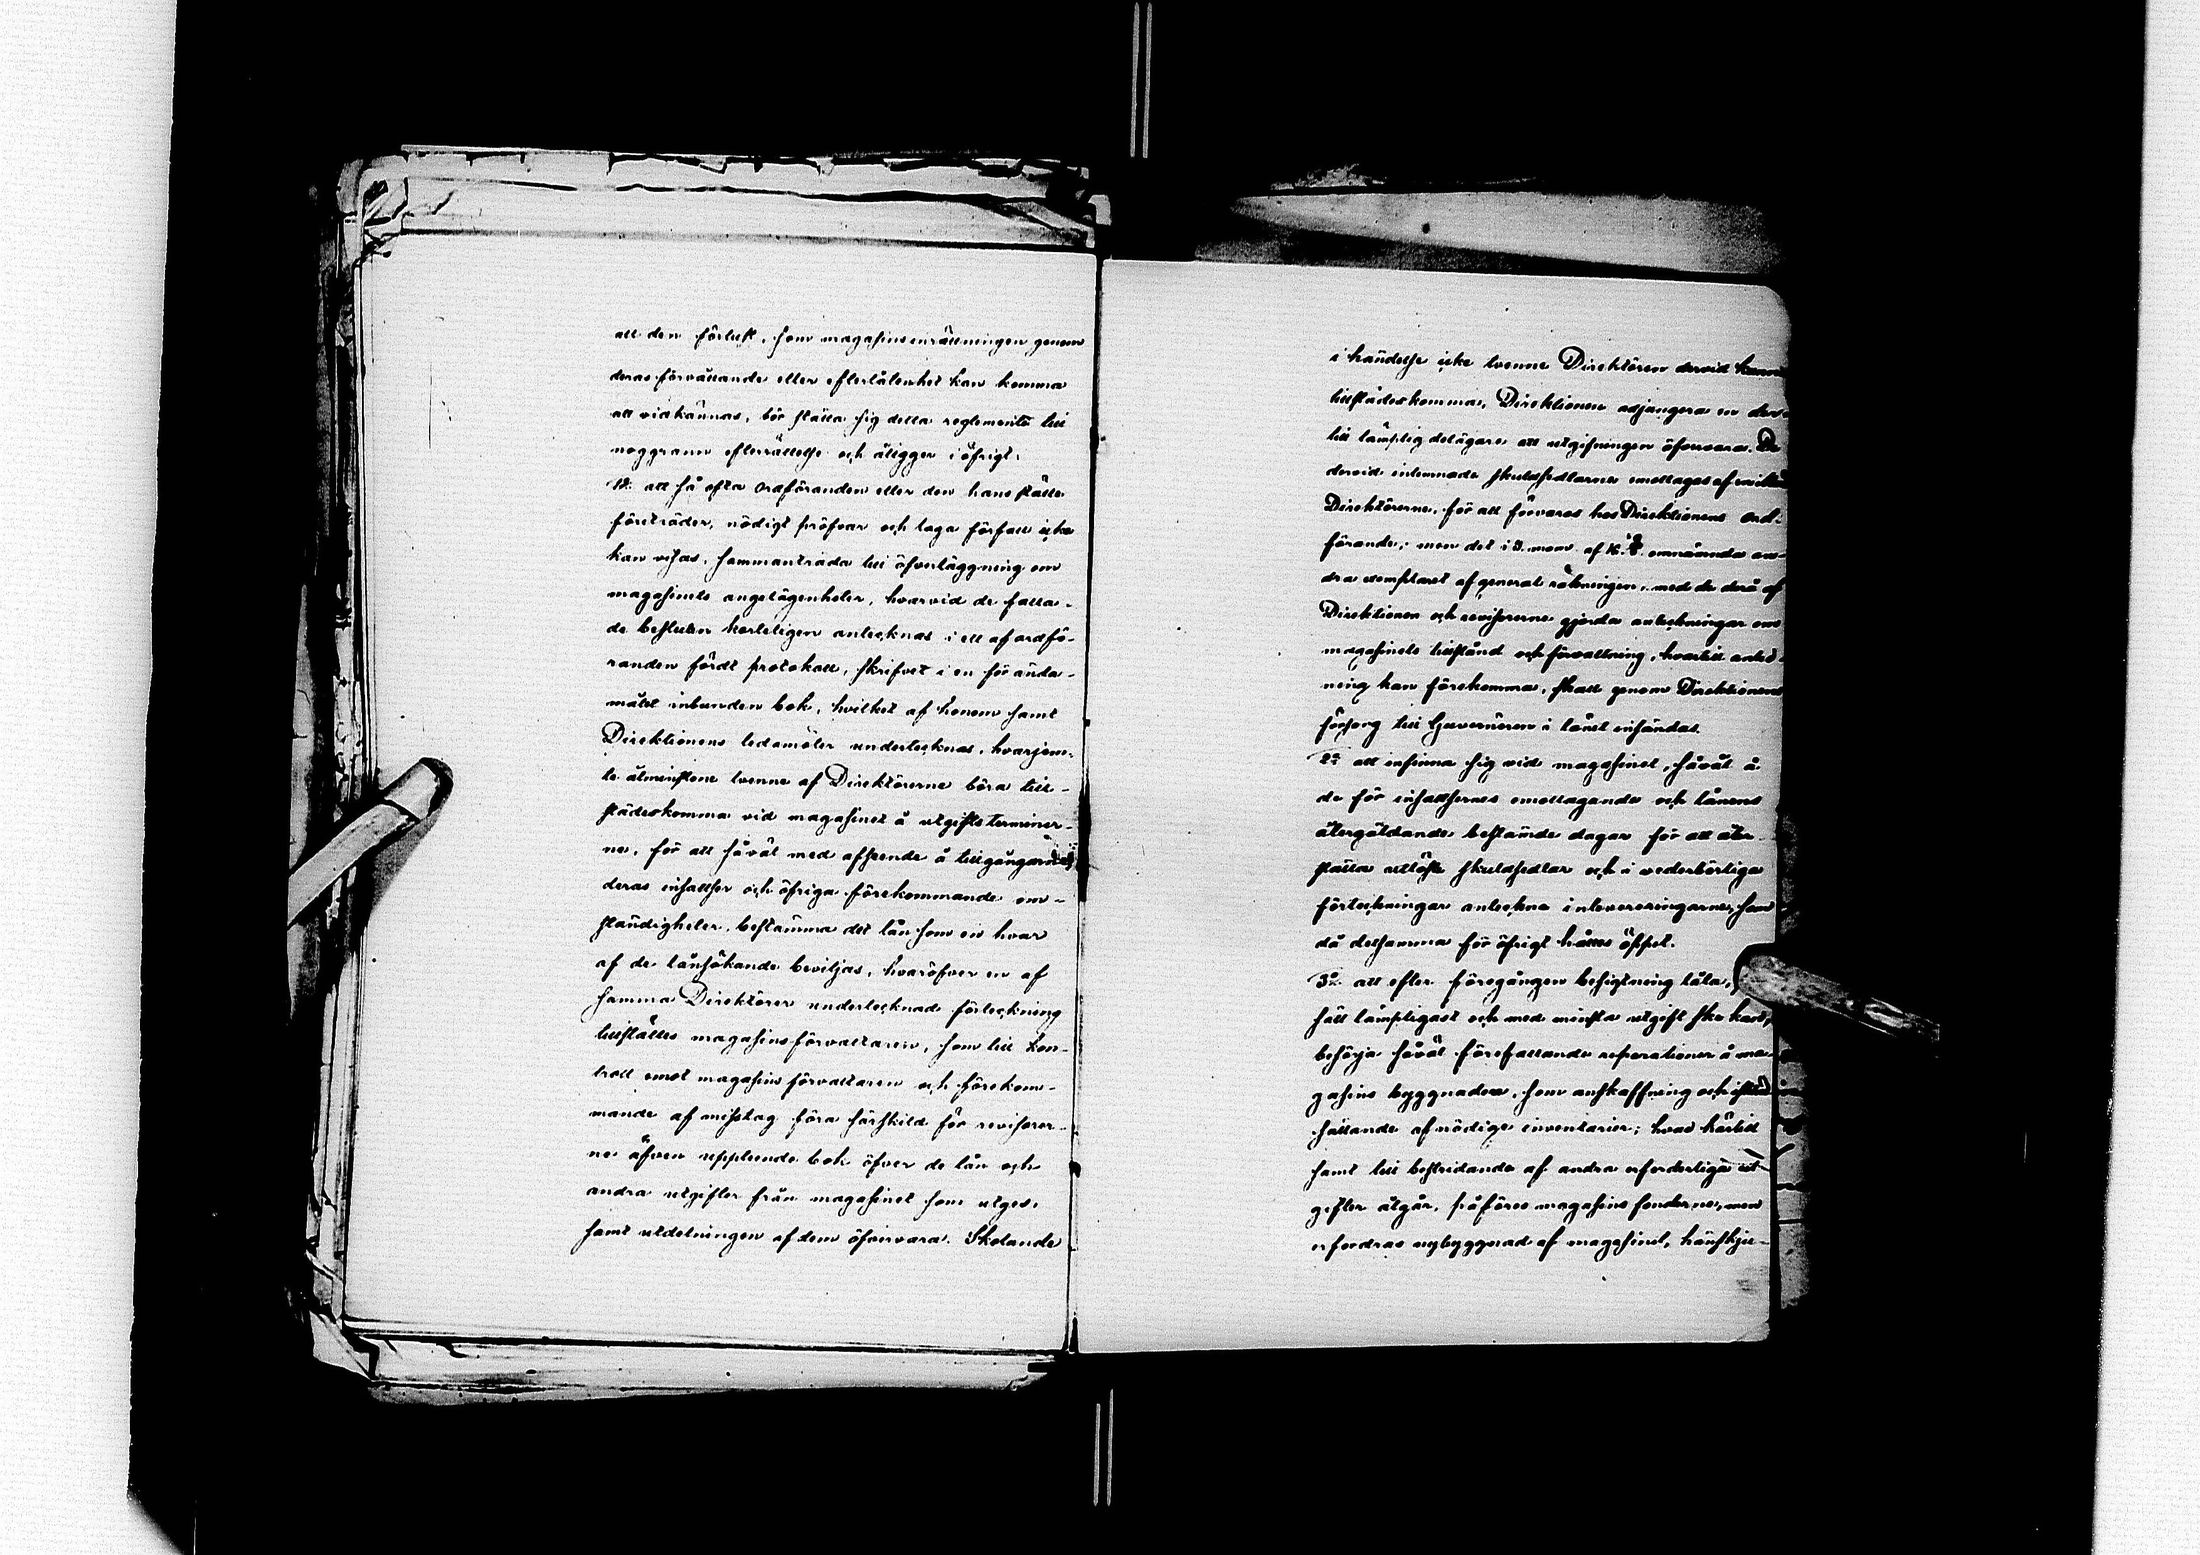 att den förlust, som magasinsinrättningen genom
deras förvållande eller efterlåtenhet kan komma
att vidkännas, bör ställa sig detta reglemente till
noggrann efterrättelse och åligger i öfrigt:
1º. att så ofta Ordföranden eller den hans ställe
företräder, nödigt pröfvar och laga förfall icke
kan visas, sammanträda till öfverläggning om
magasinets angelägenheter, hvarvid de fatta-
de besluten korteligen antecknas i ett af ordfö-
randen fördt protokoll, skrifvet i en för ända-
målet inbunden bok, hvilket af honom samt
Direktionens ledamöter undertecknas, hvarjem-
te åtminstone tvenne af Direktörerne böra till-
städeskomma vid magasinet å utgifts terminer-
ne, för att såväl med afseende å tillgångarne
deras insatser och öfriga förekommande om-
ständigheter, bestämma det lån som en hvar
af de lånsökande beviljas, hvaröfver en af
samma Direktörer undertecknad förteckning
tillställes magasinsförvaltaren, som till kon-
troll emot magasins förvaltaren och förekom-
mande af misstag föra särskild för revisorer-
ne äfven uppteende bok öfver de lån och
andra utgifter från magasinet som utges,
samt utdelningen af dem öfvervara. Skolande
i händelse icke tvenne Direktörer dervid kunna
tillstädeskomma, Direktionen adjungera en der-
till lämplig delägare att utgifningen öfvervara. De
dervid inlemnade skuldsedlarne emottages af
Direktörerne, för att förvaras hos Direktionens Ord-
förande; men det i 3. mom. af 16. § omnämnda an-
dra exemplaret af general räkningen, med de derå af
Direktionen och revisorerne gjorda anteckningar om
magasinets tillstånd och förvaltning, hvartill anled-
ning kan förekomma, skall genom Direktionens
försorg till Guvernören i länet insändas.
2º. att infinna sig vid magasinet, såväl å
de för insatsernes emottagande och lånens
återgäldande bestämde dagar för att åter-
ställa utlöste skuldsedlar och i vederbörliga
förteckningar anteckna inlevereringarne, som
då detsamma för öfrigt hålles öppet.
3º. att efter föregången besigtning låta, på
sätt lämpligast och med minsta utgift ske kan,
besörja såväl förefallande reparationer å ma-
gasins byggnaden, som anskaffning och
hållande af nödige inventarier; hvad härtill
samt till bestridande af andra erforderliga ut-
gifter åtgår, påföres magasins fonderne; men
erfordras nybyggnad af magasinet, hänskju-